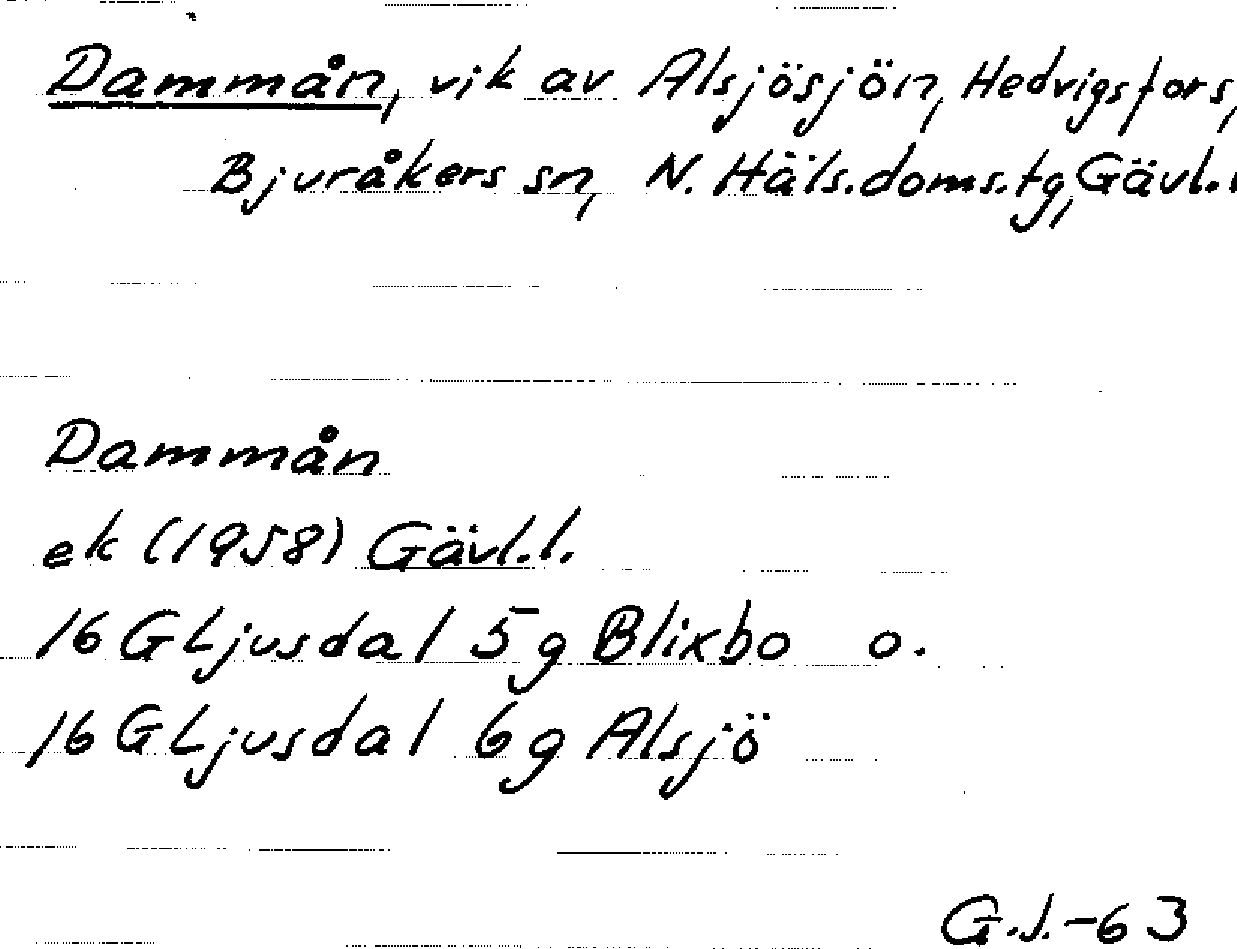 Dammån, vik av Alsjösjön, Hedvigsfors,
Bjuråkers sn, N. Häls.doms.tg, Gävl.l
Dammån
ek (1958) Gävl.l.
16 G Ljusdal 5g Blixbo o.
16 G Ljusdal 6g Alsjö
G.J.-63